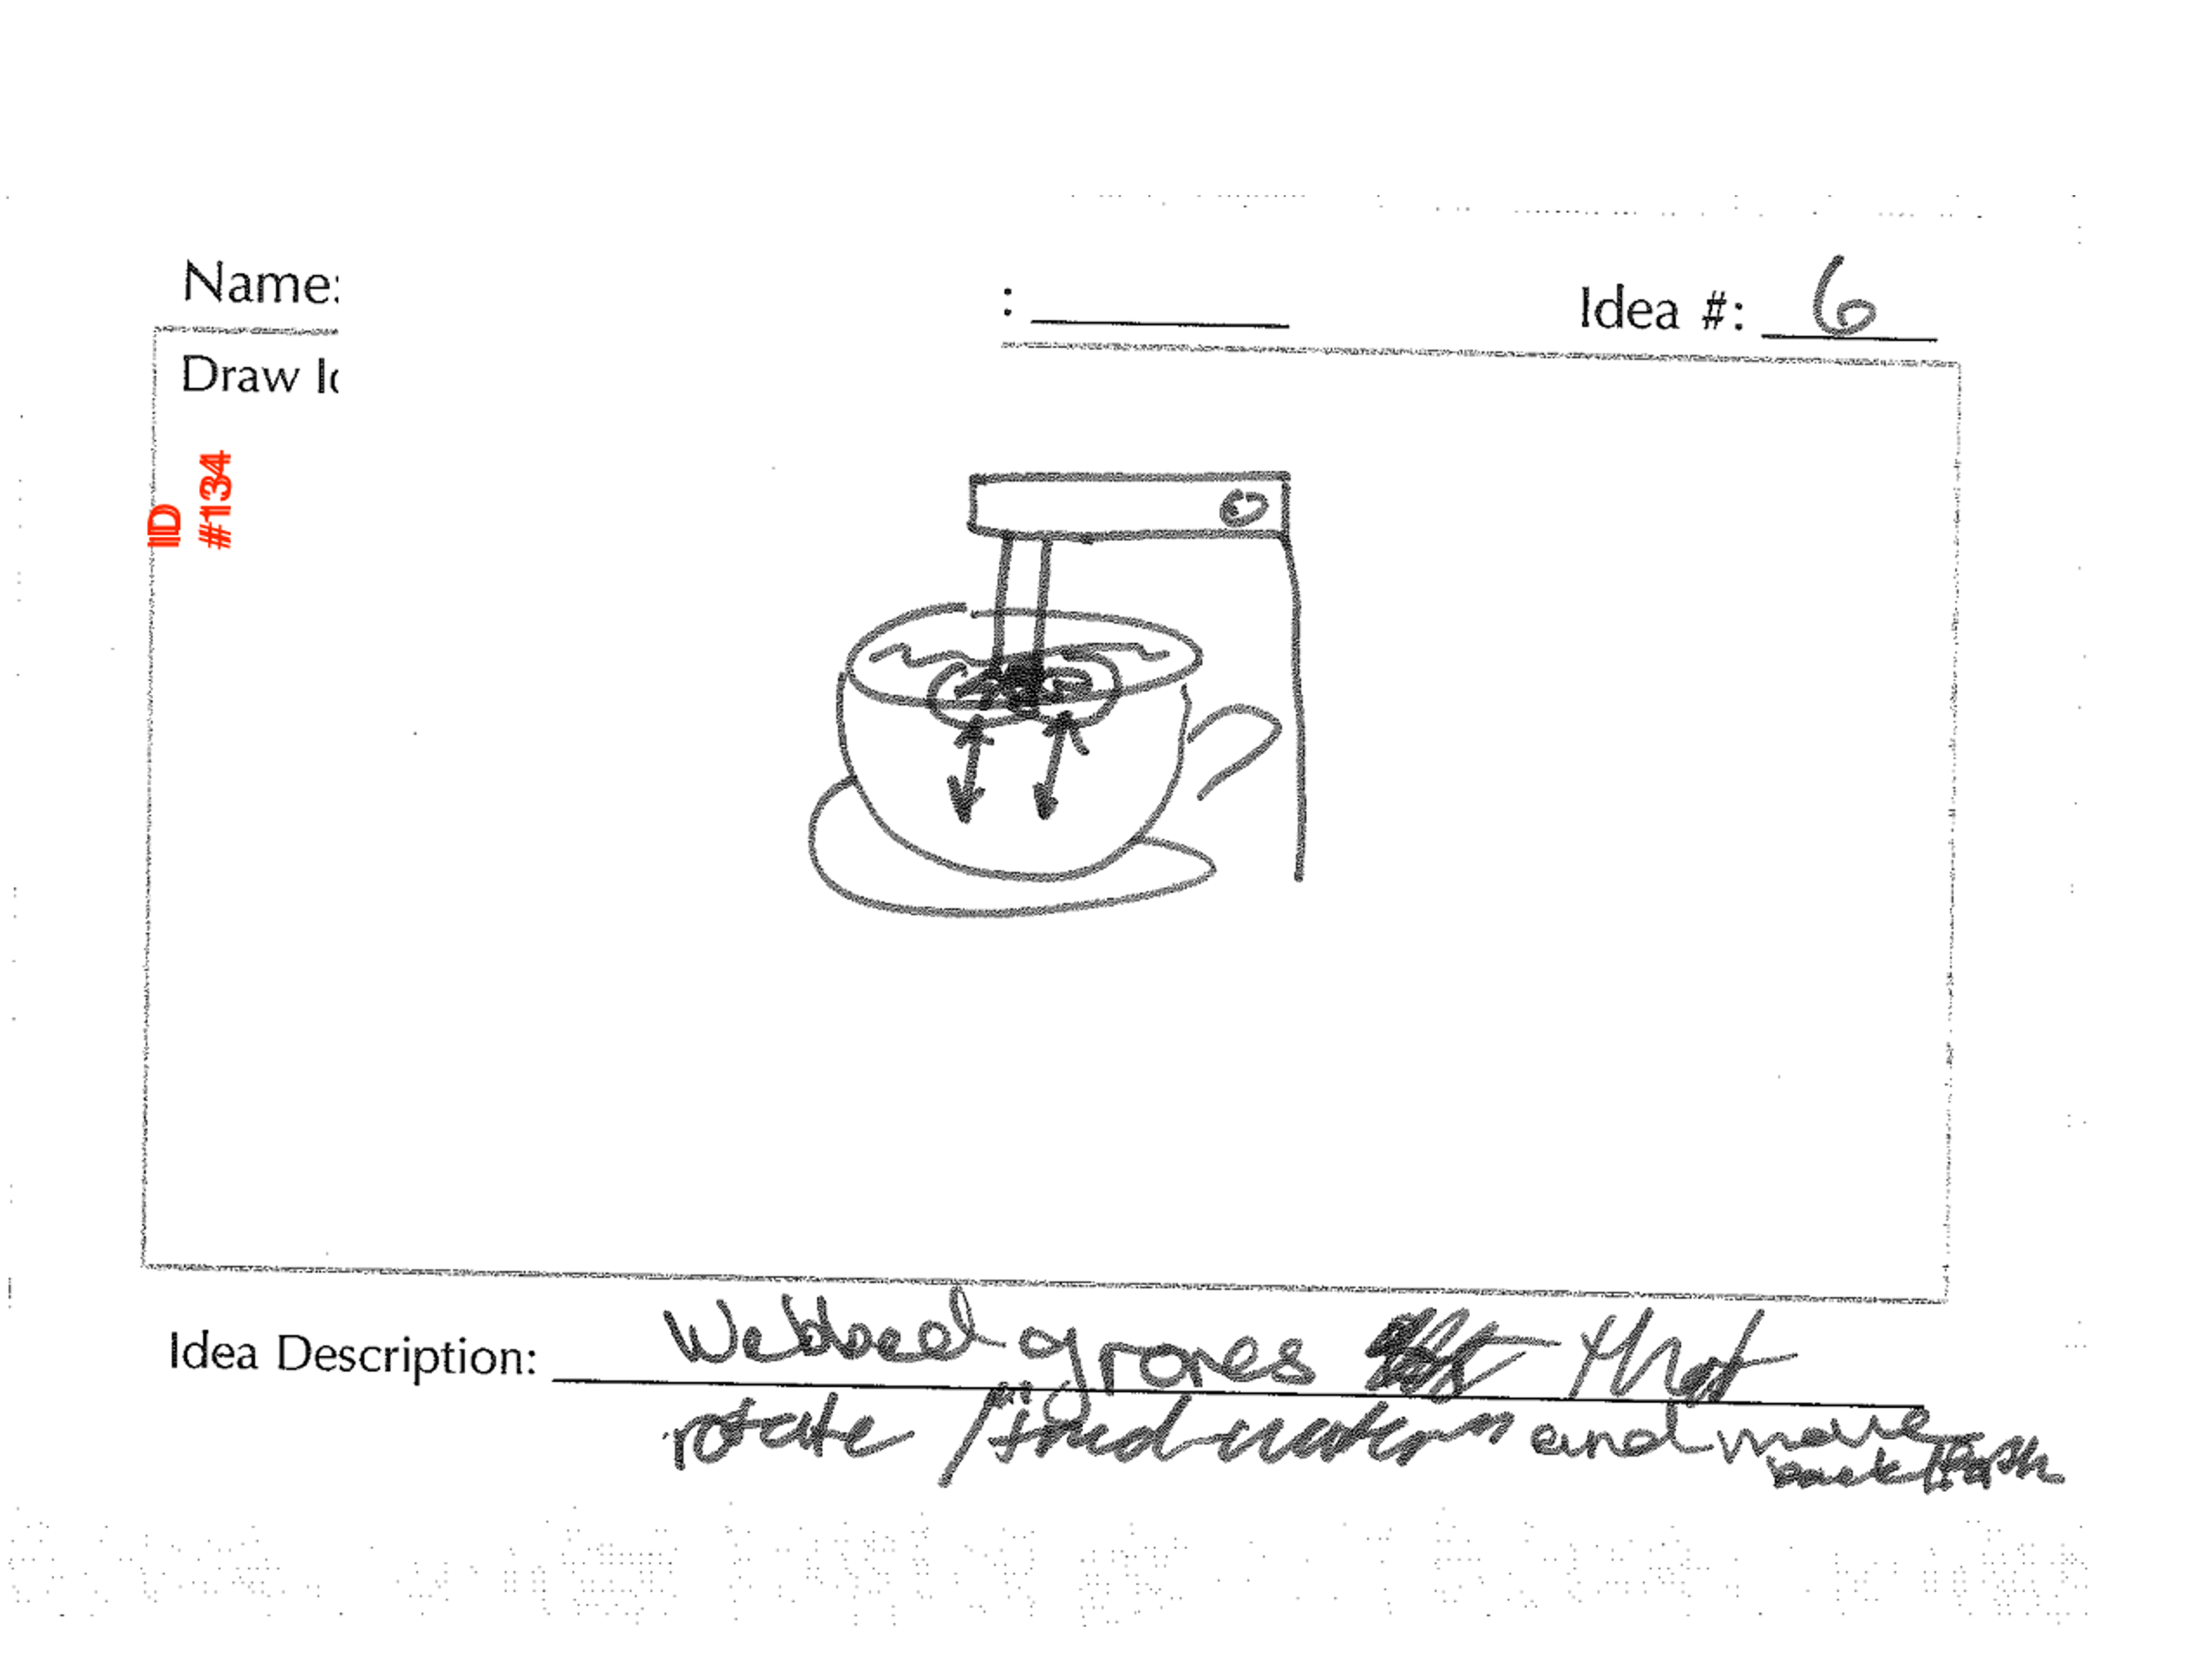 Name: : Idea #: 6
Draw Id
ID
#134
Idea Description: Webbed grooves that
rotate / and move
back forth